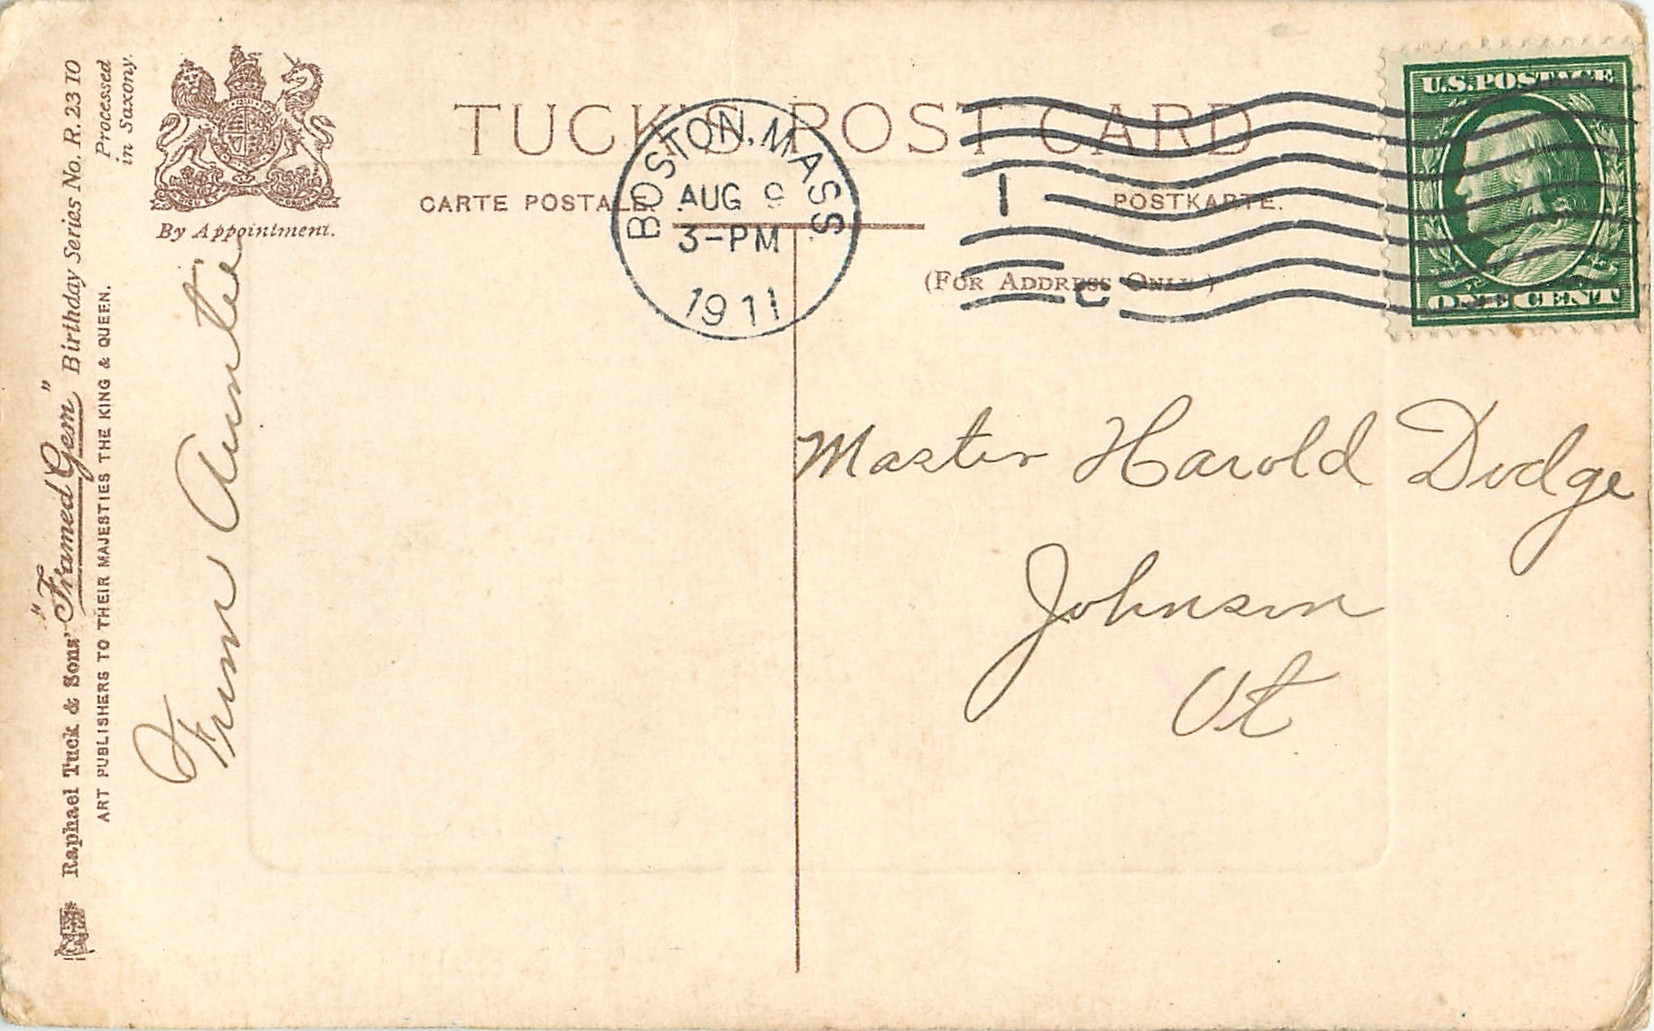 TUCK'S POST CARD
CARTE POSTALE.
POSTKARTE.
(FOR ADDRESS ONLY.)
BOSTON, MASS.
AUG 9
3-PM
1911
1
C
U.S. POSTAGE
ONE CENT
By Appointment.
Raphael Tuck & Sons' "Framed Gem" Birthday Series No. R. 2310
ART PUBLISHERS TO THEIR MAJESTIES THE KING & QUEEN.
Processed
in Saxony.
From Auntie
Master Harold Dodge
Johnson
Vt